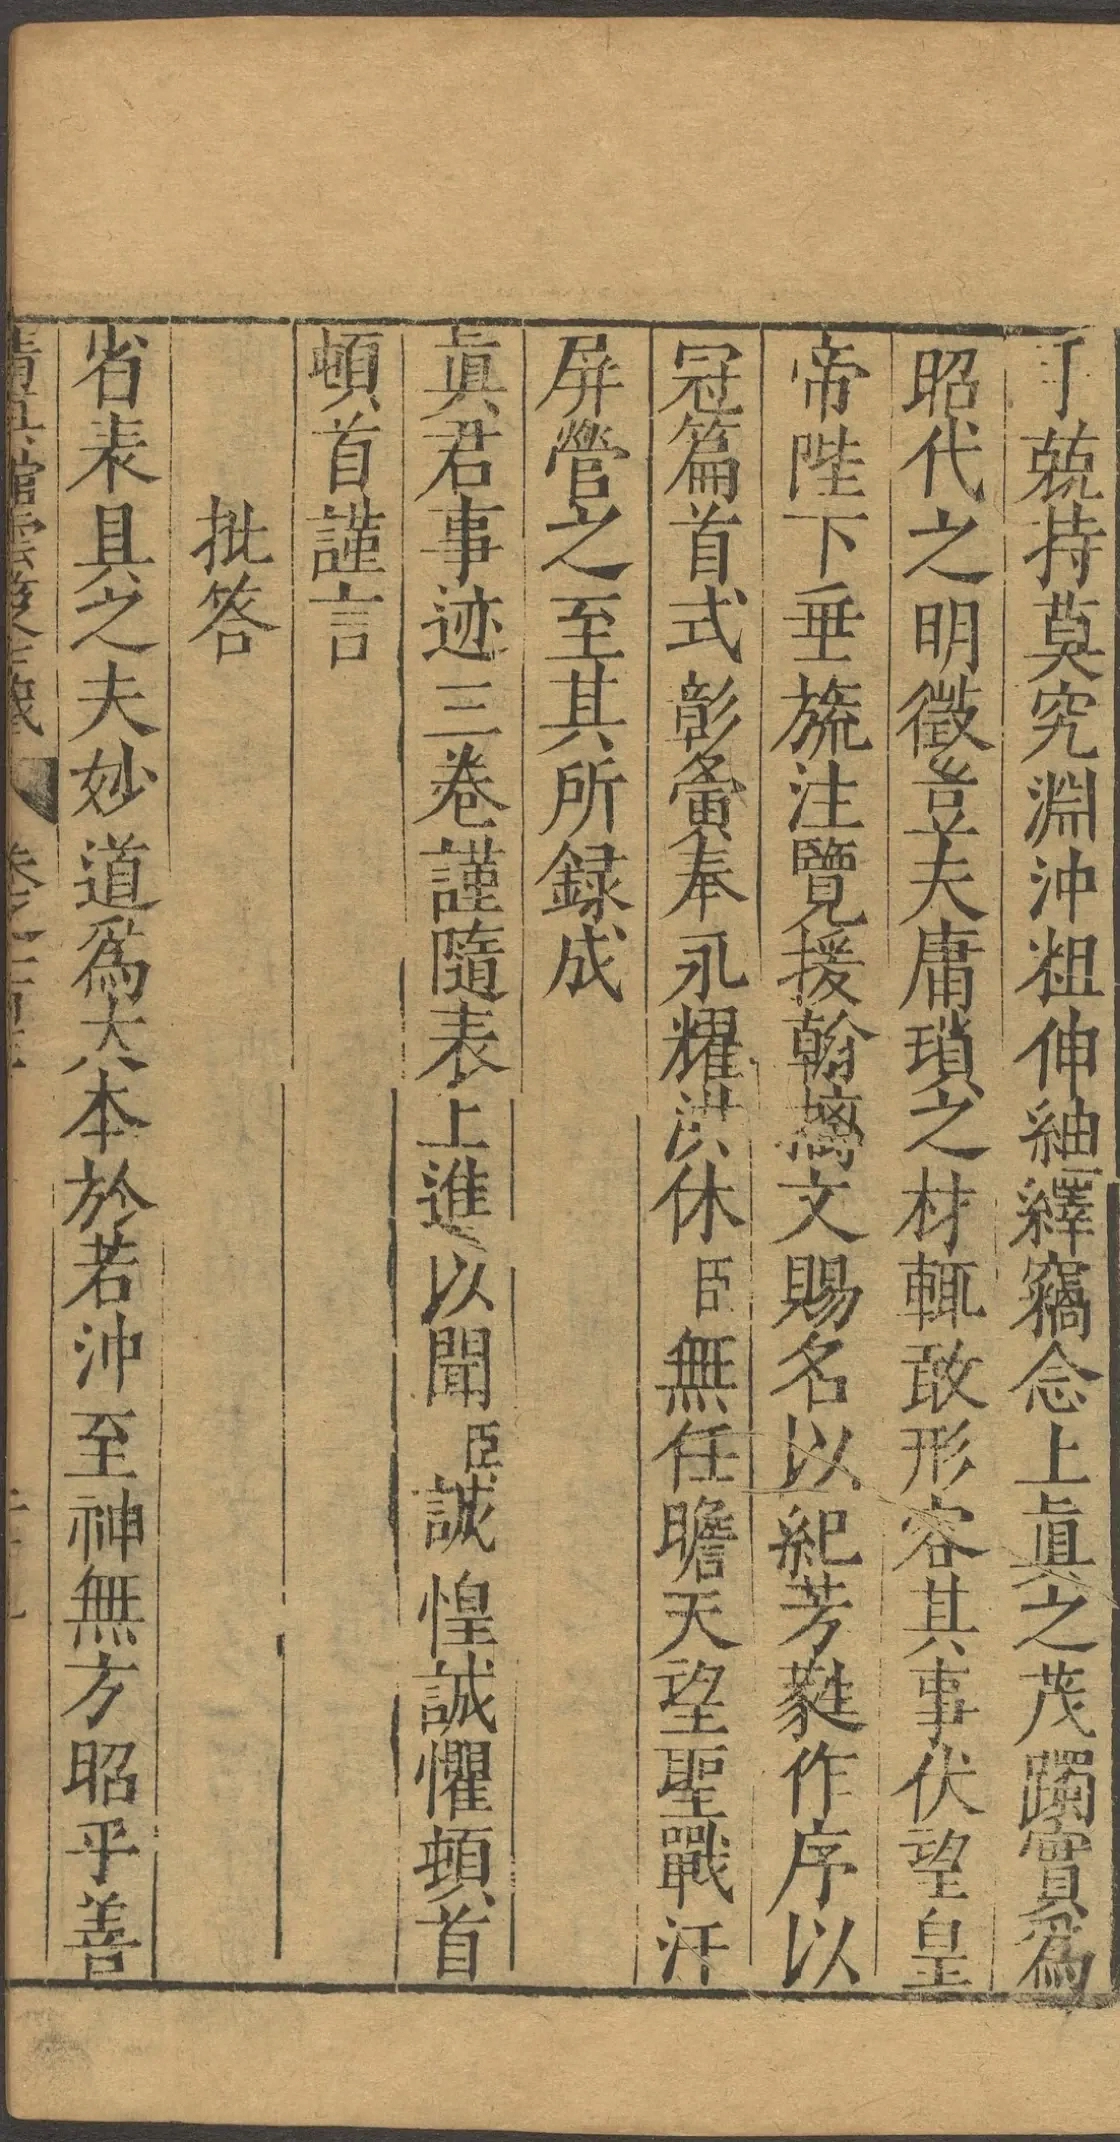 兢持莫究淵沖粗伸紬繹竊念上眞之茂躅實爲
昭代之明徵豈夫庸瑣之材輒敢形容其事伏望皇
帝陛下垂旒注覽援翰摛文賜名以紀芳蕤作序以
冠篇首式彰彙奉永耀洪休臣無任瞻天望聖戰汗
屏營之至其所録成
眞君事迹三卷謹隨表上進以聞臣誠惶誠懼頓首
頓首謹言
批答
省表具之夫妙道爲大本於若沖至神無方昭乎善